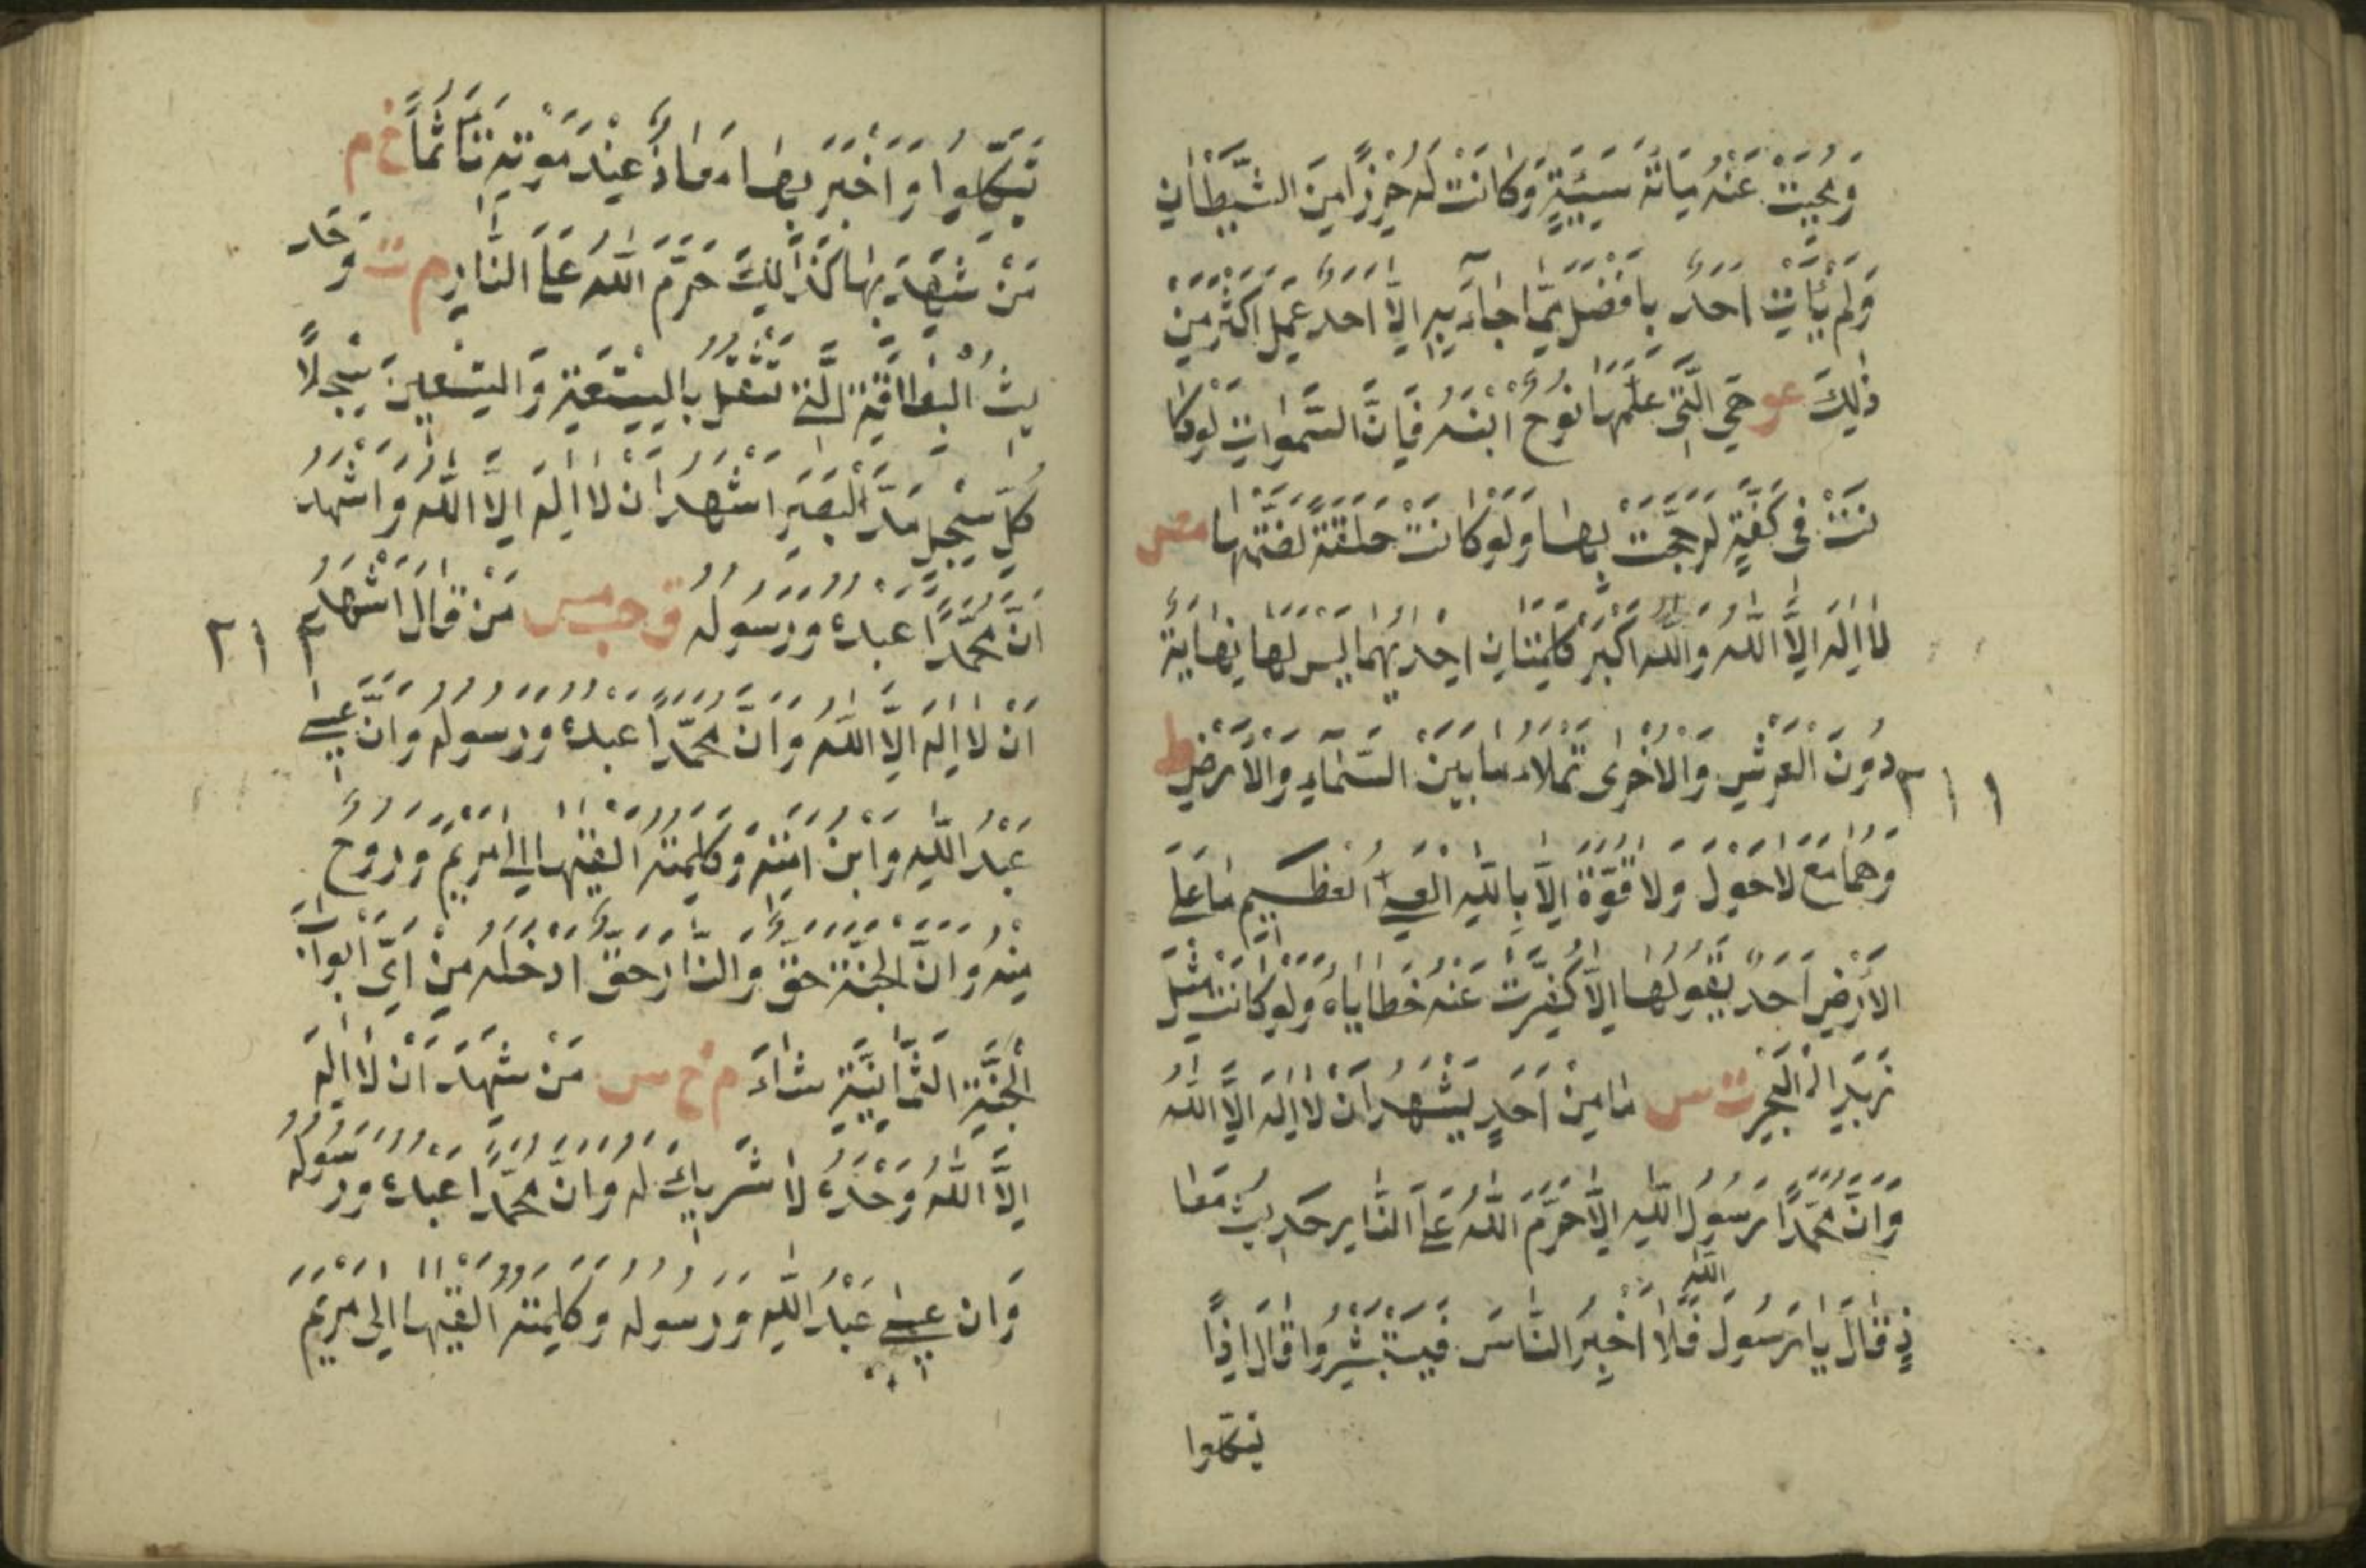 وَمُحِيَتْ عَنْهُ مِائَةُ سَيِّئَةٍ وَكَانَتْ لَهُ حِرْزًا مِنَ الشَّيْطَانِ
وَلَمْ يَأْتِ اَحَدٌ بِاَفْضَلَ مِمَّا جَآءَ بِهِ اِلَّا اَحَدٌ عَمِلَ اَكْثَرَ مِنْ
ذٰلِكَ عو هِيَ الَّتِي عَلَّمَهَا نُوحٌ ابْنَهُ فَاِنَّ السَّمٰوَاتِ لَوْ كَا
نَتْ فِي كَفَّةٍ لَرَجَحَتْ بِهَا وَلَوْ كَانَتْ حَلْقَةً لَضَمَّتْهَا مص
لَا اِلٰهَ اِلَّا اللّٰهُ وَاللّٰهُ اَكْبَرُ كَلِمَتَانِ اِحْدٰيهُمَا لَيْسَ لَهَا نِهَايَةٌ
دُونَ الْعَرْشِ وَالْاُخْرٰى تَمْلَاُ مَا بَيْنَ السَّمَآءِ وَالْاَرْضِ ط
٢ ١ ١
وَهُمَا مَعَ لَا حَوْلَ وَلَا قُوَّةَ اِلَّا بِاللّٰهِ الْعَلِيِّ الْعَظِيمِ مَا عَلَى
الْاَرْضِ اَحَدٌ يَقُولُهَا اِلَّا كُفِّرَتْ عَنْهُ خَطَايَاهُ وَلَوْ كَانَتْ مِثْلَ
زَبَدِ الْبَحْرِ ت س مَا مِنْ اَحَدٍ يَشْهَدُ اَنْ لَا اِلٰهَ اِلَّا اللّٰهُ
وَاَنَّ مُحَمَّدًا رَسُولُ اللّٰهِ اِلَّا حَرَّمَ اللّٰهُ عَلَى النَّارِ حَدِيثُ مُعَا
ذٍ قَالَ يَا رَسُولَ اللّٰهِ فَلَا اُخْبِرُ النَّاسَ فَيَسْتَبْشِرُوا قَالَ اِذًا
يتكلوا
يَتَّكِلُوا وَاَخْبَرَ بِهَا مُعَاذٌ عِنْدَ مَوْتِهِ تَاَثُّمًا خ م
مَنْ شَهِدَ بِهَا كَذٰلِكَ حَرَّمَ اللّٰهُ عَلَى النَّارِ م ت وَحَد
يثُ الْبِطَاقَةِ الَّتِي تَثْقُلُ بِالتِّسْعَةِ وَالتِّسْعِينَ سِجِلًّا
كُلُّ سِجِلٍّ مَدَّ الْبَصَرِ اَشْهَدُ اَنْ لَا اِلٰهَ اِلَّا اللّٰهُ وَاَشْهَدُ
اَنَّ مُحَمَّدًا عَبْدُهُ وَرَسُولُهُ ق حب مس مَنْ قَالَ اَشْهَدُ
٢ ١ ٢
اَنْ لَا اِلٰهَ اِلَّا اللّٰهُ وَاَنَّ مُحَمَّدًا عَبْدُهُ وَرَسُولُهُ وَاَنَّ عِيسٰى
عَبْدُ اللّٰهِ وَابْنُ اَمَتِهِ وَكَلِمَتُهُ اَلْقٰيهَا اِلٰى مَرْيَمَ وَرُوحٌ
مِنْهُ وَاَنَّ الْجَنَّةَ حَقٌّ وَالنَّارَ حَقٌّ اَدْخَلَهُ مِنْ اَيِّ اَبْوَابِ
الْجَنَّةِ الثَّمَانِيَةِ شَآءَ م خ س مَنْ شَهِدَ اَنْ لَا اِلٰهَ
اِلَّا اللّٰهُ وَحْدَهُ لَا شَرِيكَ لَهُ وَاَنَّ مُحَمَّدًا عَبْدُهُ وَرَسُولُهُ
وَاَنَّ عِيسٰى عَبْدُ اللّٰهِ وَرَسُولُهُ وَكَلِمَتُهُ اَلْقٰيهَا اِلٰى مَرْيَمَ